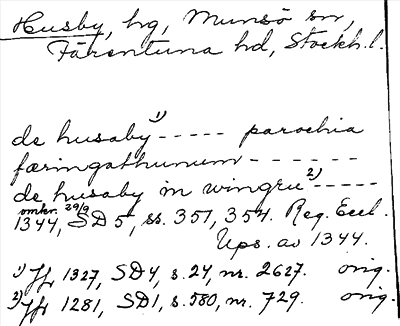 Husby, hg, Munsö sn,
Färentuna hd, Stockh. l.
de husaby 1) ----- parochia
færingathunum -------
de husaby in wingru 2) -----
omkr. 29/3
1344, SD 5, ss. 351, 354. Reg. Eccl.
Ups. av 1344.
1) Jfr 1327, SD 4, s. 24, nr. 2627. orig.
2) Jfr 1281, SD 1, s. 580, nr. 729. orig.